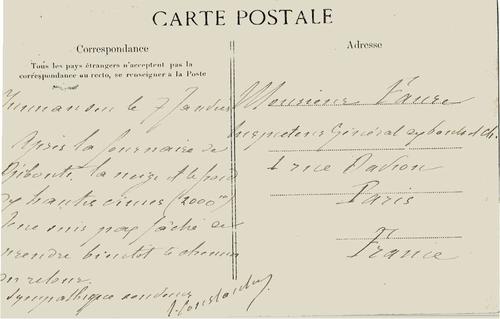 CARTE POSTALE
Correspondance
Tous les pays étrangers n'acceptent pas la
correspondance au recto, se renseigner à la Poste
Adresse
Yunnansen le 7 Janvier
Après la fournaise de
Djibouti, la neige et le froid
des hautes cimes (2000 m)
Je ne suis pas fâché de
prendre bientôt le chemin
du retour.
Sympathique
Monsieur Faure
Inspecteur Général des
4 rue
Paris
France